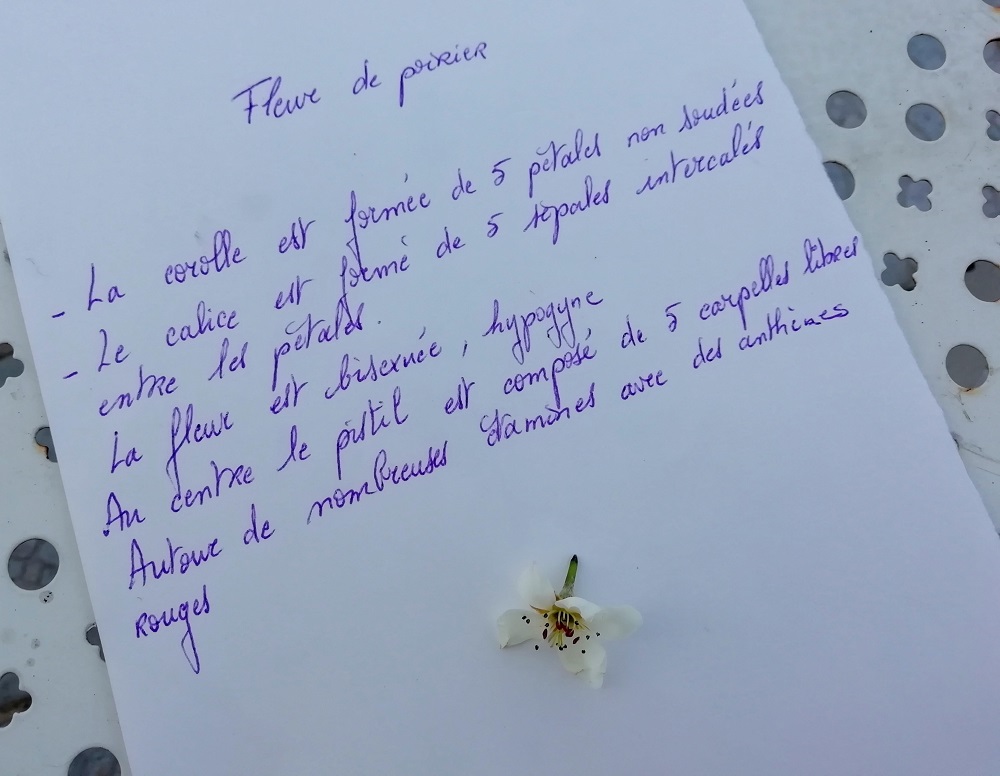 Fleur de poirier
- La corolle est formée de 5 pétales non soudées
- Le calice est formé de 5 sépales intercalés
entre les pétales.
La fleur est bisexuée, hypogyne
Au centre le pistil est composé de 5 carpelles libres
Autour de nombreuses étamines avec des anthères
rouges